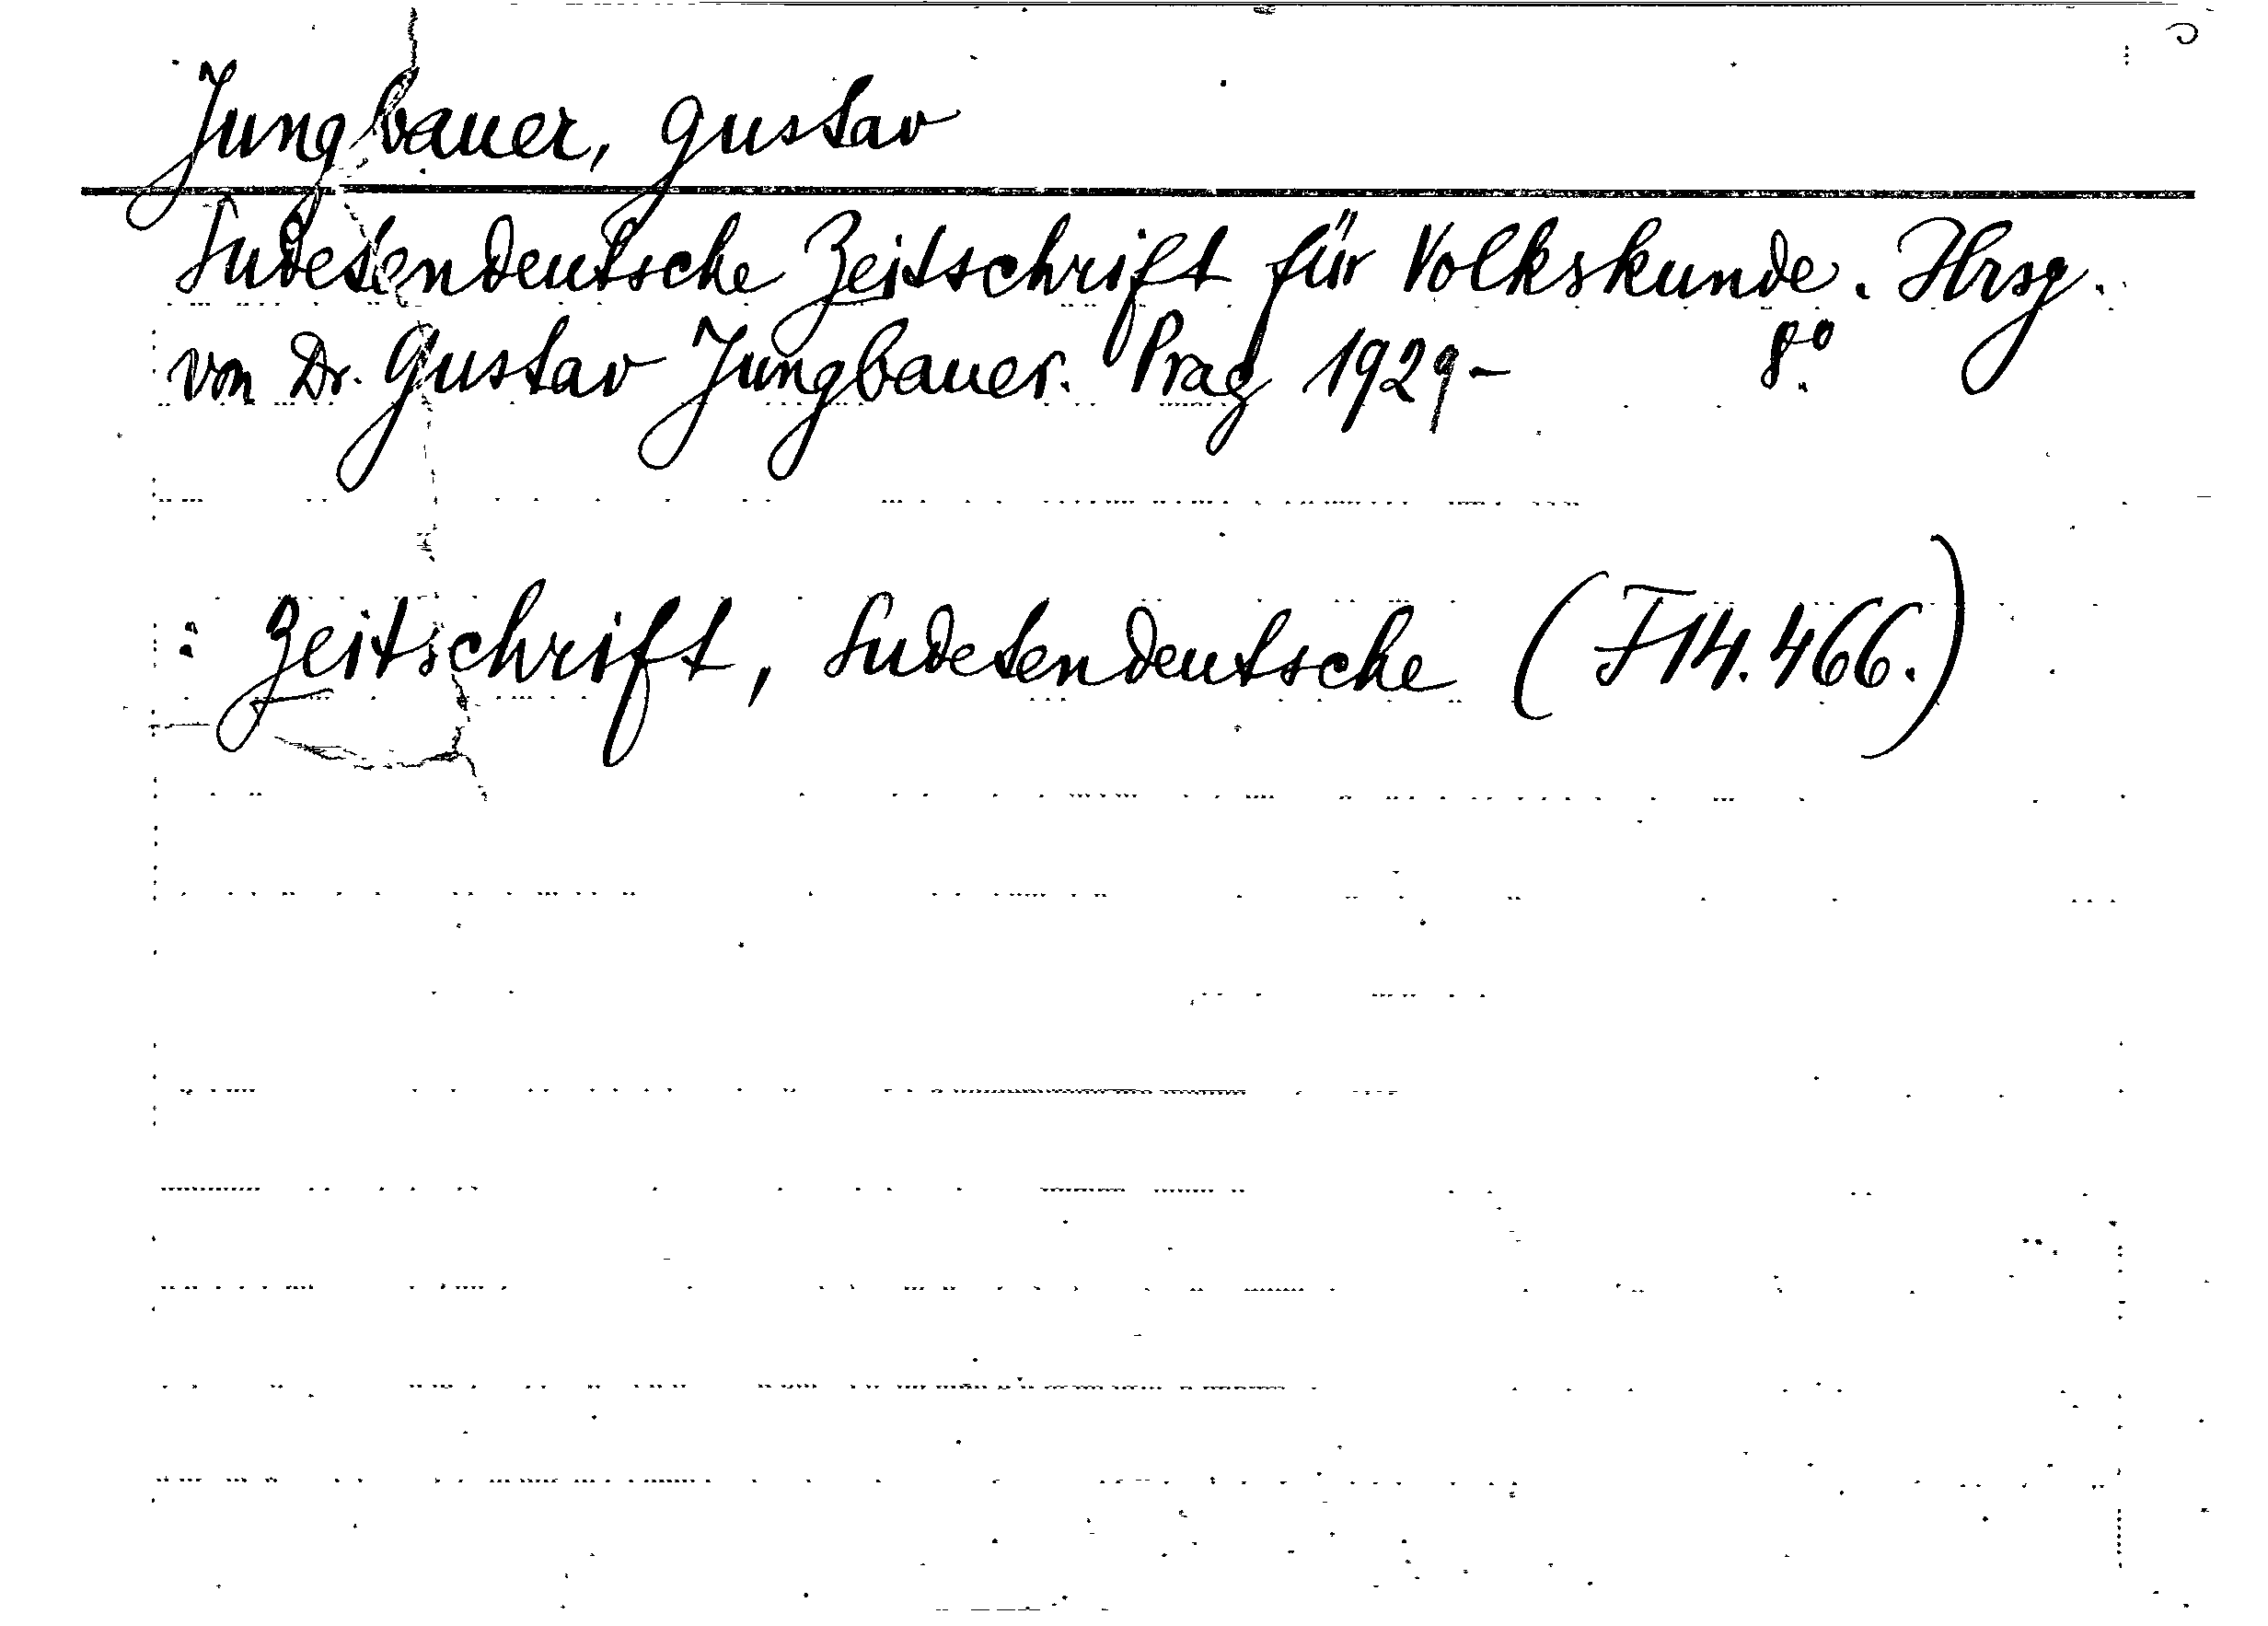 Jungbauer, Gustav
Sudetendeutsche Zeitschrift für Volkskunde. Hrsg.
von Dr. Gustav Jungbauer. Prag 1929- 8.º
: Zeitschrift, Sudetendeutsche (F14.466.)